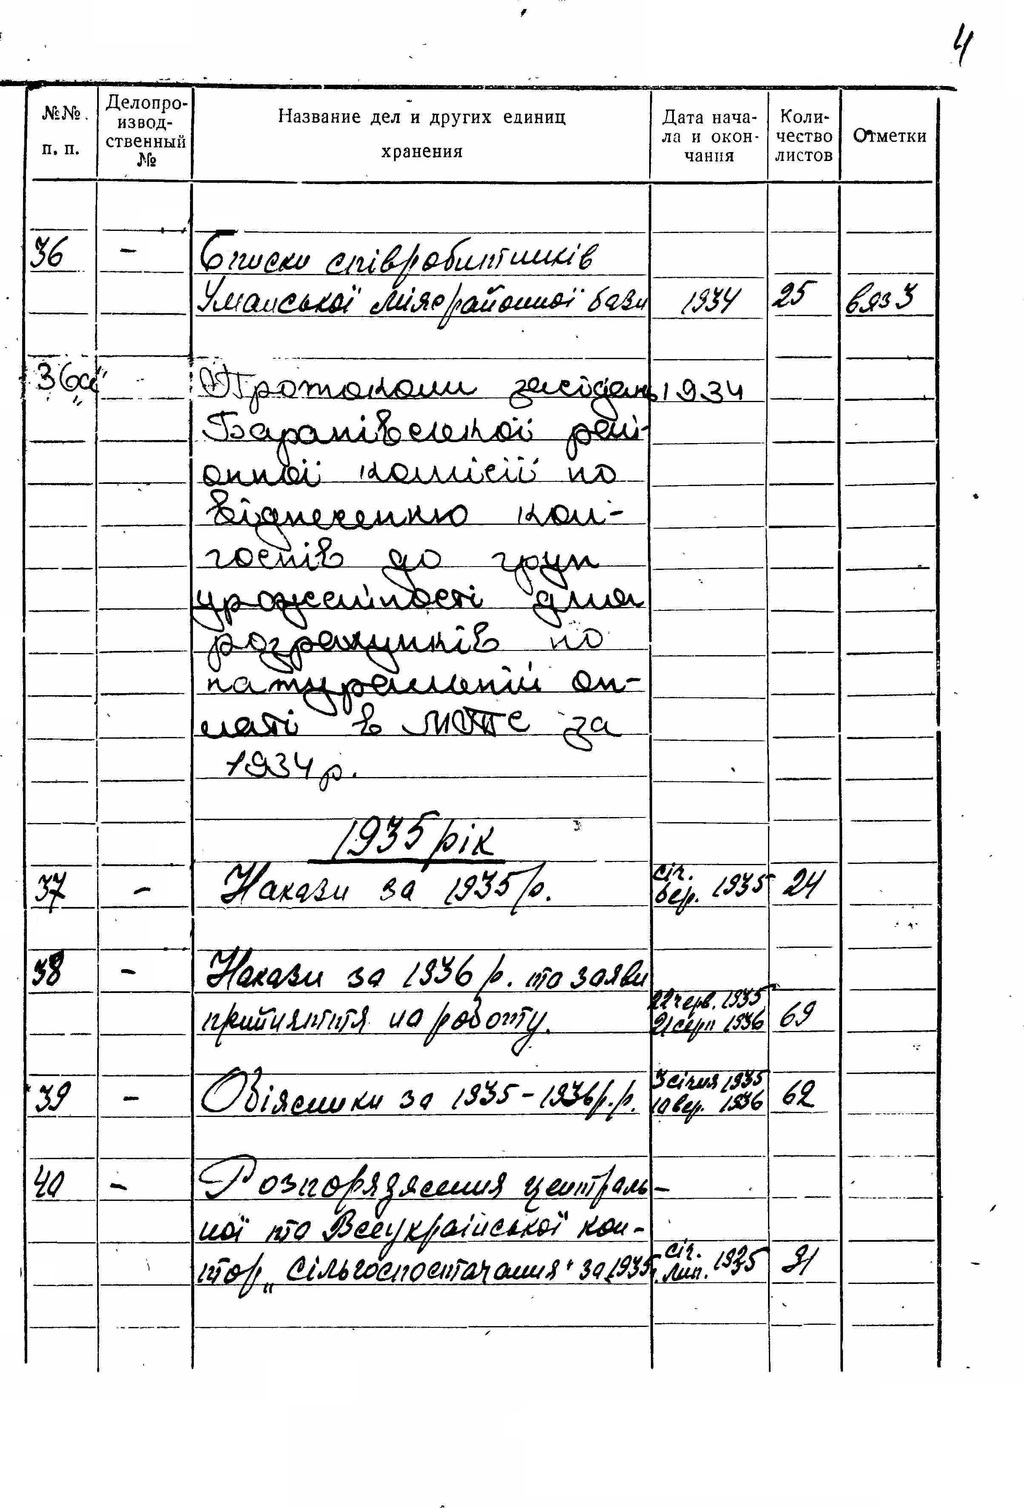 4
№№ п. п.
Делопро-
извод-
ственный
№
Название дел и других единиц
хранения
Дата нача-
ла и окон-
чания
Коли-
чество
листов
Отметки
36 – Списки співробитників
Уманської міжрайонної бази 1934 25
36"а" Протоколи засідань 1934
Баранівської рай-
онної комісії по
віднесенню кол-
госпів до груп
урожайності для
розрахунків по
натуральній оп-
латі в МТС за
1934 р.
1935 рік
37 – Накази за 1935 р. січ. бер. 1935 24
38 – Накази за 1936 р. та заяви
прийняття на роботу. 22 черв. 1935 21 серп 1936 69
39 – Обіжники за 1935-1936 р.р. 3 січня 1935 10 вер. 1936 62
40 – Розпорядження централь-
ної та Всеукраїнської кон-
тор „Сільгоспостачання" за 1935 р. січ. лип. 1935 31